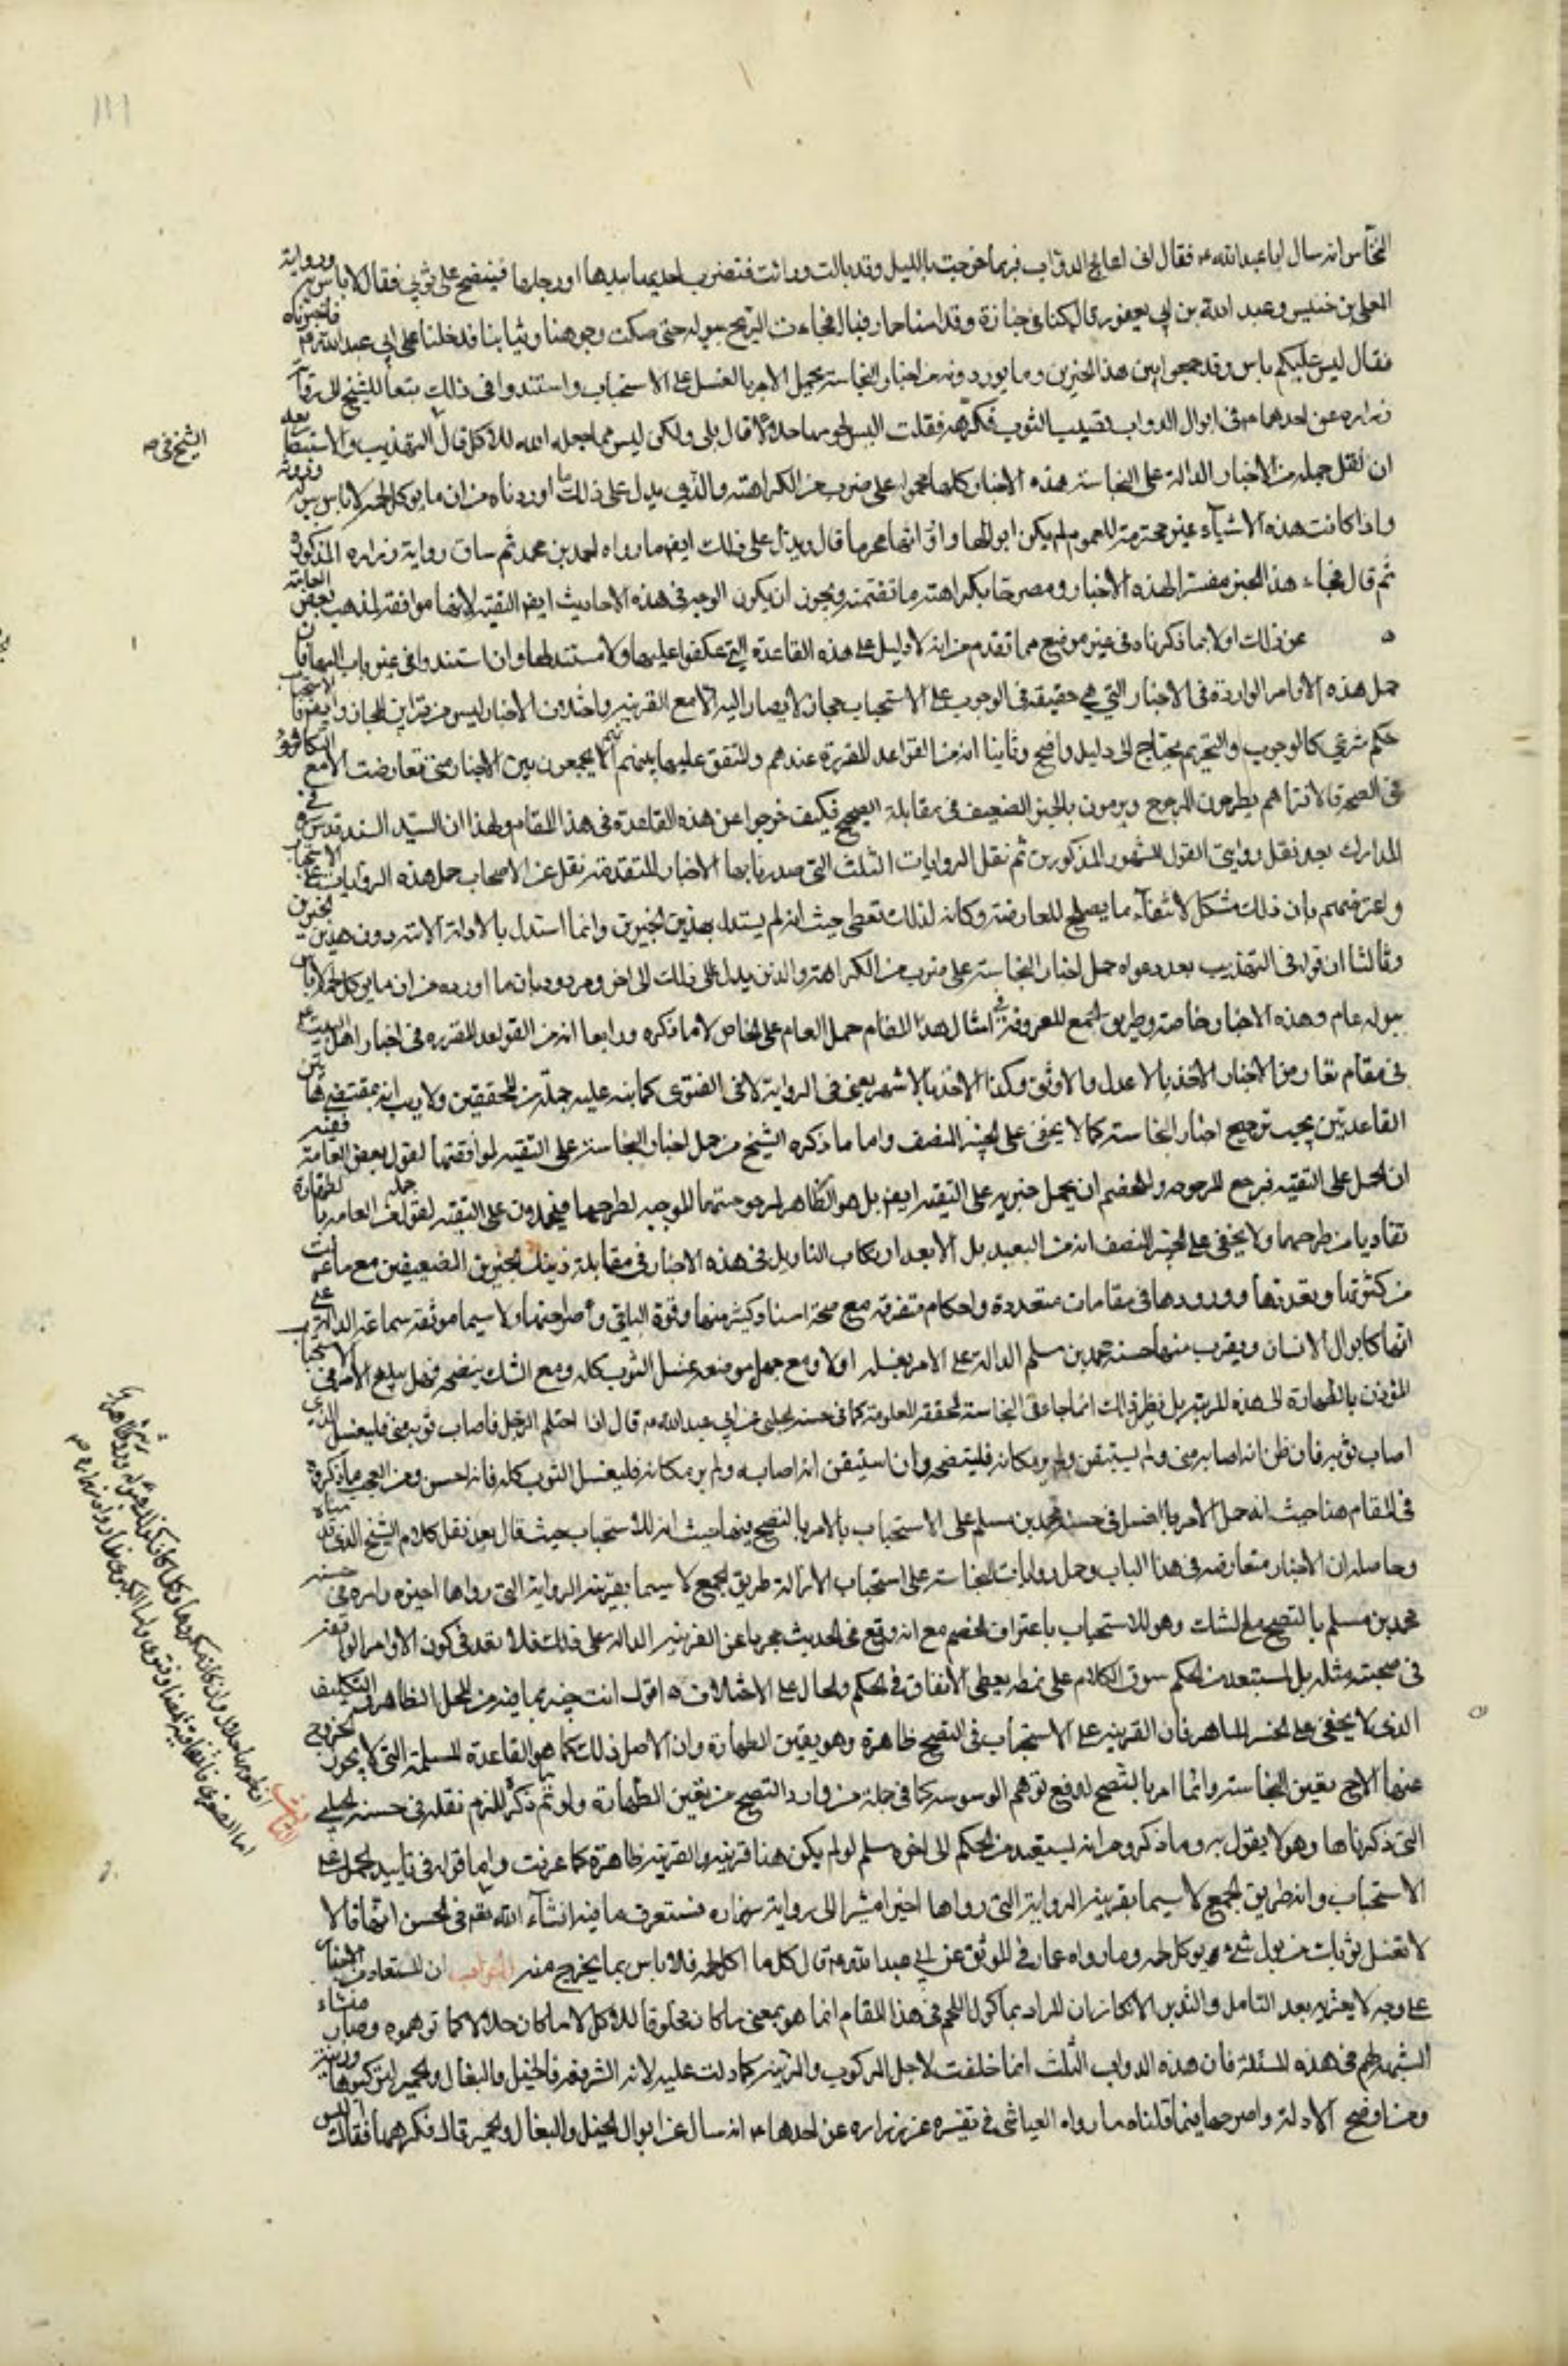 النخاس انه سال ابا عبدالله ع فقال اني اعالج الدواب فربما خرجت بالليل وقد بالت وراثت فتضرب احديها بيدها او رجلها فينضح على ثوبي فقال لا باس به ورواية
المعلى بن خنيس وعبد الله بن ابي يعفور قالا كنا في جنازة وقدامنا حمار فبال فجاءت الريح ببوله حتى صكت وجوهنا وثيابنا فدخلنا على ابي عبدالله ع فاخبرناه
فقال ليس عليكم باس وقد جمعوا بين هذين الخبرين وما يوردونه من اخبار النجاسة بحمل الامر بالغسل على الاستحباب واستندوا في ذلك تبعا للشيخ الى رواية
زراره عن احدهما ع في ابوال الدواب تصيب الثوب فكرهه فقلت اليس لحومها حلالا قال بلى ولكن ليس مما جعله الله للاكل قال في التهذيب والاستبصار بعد
الشيخ في ص
ان نقل جملة من الاخبار الدالة على النجاسة هذه الاخبار كلها محمولة على ضرب من الكراهة والذي يدل على ذلك ما اوردناه من ان ما يوكل لحمه لا باس ببوله وروثه
واذا كانت هذه الاشياء غير محرمة اللحوم لم يكن ابوالها واروائها محرما قال ويدل على ذلك ايضا ما رواه احمد بن محمد ثم ساق رواية زراره المذكورة
ثم قال فجاء هذا الخبر مفسرا لهذه الاخبار ومصرحا بكراهة ما تضمنته ويجوز ان يكون الوجه في هذه الاحاديث ايضا التقية لانها موافقة لمذهب بعض العامة
عن ذلك اولا بما ذكرناه في غير موضع مما تقدم من انه لا دليل على هذه القاعدة التي عكفوا عليها ولا مستند لها وان استندوا في غير باب اليها فان
حمل هذه الاوامر الواردة في الاخبار التي هي حقيقة في الوجوب على الاستحباب مجاز لا يصار اليه الا مع القرينة واختلاف الاخبار ليس من قراين المجاز وايضا فالاستحباب
حكم شرعي كالوجوب والتحريم يحتاج الى دليل واضح وثانيا انه من القواعد المقررة عندهم والمتفق عليها بينهم انهم لا يجمعون بين الاخبار متى تعارضت الا مع التكافؤ
في الصحة والا فتراهم يطرحون المرجوح ويرمون بالخبر الضعيف في مقابلة الصحيح فكيف خرجوا عن هذه القاعدة في هذا المقام ولهذا ان السيد السند قدس سره في
المدارك بعد نقل روايتي القول المشهور المذكورتين ثم نقل الروايات الثلث التي صدرنا بها الاخبار المتقدمة نقل عن الاصحاب حمل هذه الروايات على الاستحباب
واعترضهم بان ذلك مشكل لانتفاء ما يصلح للمعارضة وكانه لذلك تعطى حيث انه لم يستدل بهذين الخبرين وانما استدل بالادلة الاتية دون هذين الخبرين
وثالثا ان قوله في التهذيب بعد دعواه حمل اخبار النجاسة على ضرب من الكراهة والذي يدل على ذلك الى اخره مردود بان ما اورده من ان ما يوكل لحمه لا باس
ببوله عام وهذه الاخبار خاصة وطريق الجمع المعروفة في امثال هذا المقام حمل العام على الخاص لا ما ذكره ورابعا انه من القواعد المقررة في اخبار اهل البيت ع
في مقام تعارض الاخبار الاخذ بالاعدل والاوثق وكذا الاخذ بالاشهر يعني في الرواية لا في الفتوى كما نبه عليه جملة من المحققين ولا ريب انه بمقتضى هاتين
القاعدتين يجب ترجيح اخبار النجاسة كما لا يخفى على الخبير المنصف واما ما ذكره الشيخ من حمل اخبار النجاسة على التقية لموافقتها لقول بعض العامة ففيه
ان الحمل على التقية فرع المرجوحية وللخصم ان يحمل خبريه على التقية ايضا بل هو الظاهر لمرجوحيتهما الموجبة لطرحهما فيحملان على التقية لقول جملة من العامة بالطهارة
تفاديا من طرحهما ولا يخفى على الخبير المنصف انه من البعيد بل الابعد ارتكاب التاويل في هذه الاخبار في مقابلة ذينك الخبرين الضعيفين مع ما عرفت
من كثرتها وتعددها وورودها في مقامات متعددة واحكام متفرقة مع صحة اسناد كثير منها وقوة الباقي وصراحتها ولا سيما موثقة سماعة الدالة على
انها كابوال الانسان ويقرب منها حسنة محمد بن مسلم الدالة على الامر بغسله اولا ومع جهل موضعه غسل الثوب كله ومع الشك ينضحه فهل يبلغ الامر في الاستحباب
المؤذن بالطهارة الى هذه المرتبة بل نظير ذلك انما جاء في النجاسة المحققة المعلومة كما في حسنة الحلبي عن ابي عبدالله ع قال اذا احتلم الرجل فاصاب ثوبه مني فليغسل الذي
اصاب ثوبه فان ظن انه اصابه مني ولم يستيقن ولم ير مكانه فلينضحه وان استيقن انه اصابه ولم ير مكانه فليغسل الثوب كله فانه احسن ومن العجب ما ذكروه
في المقام هنا حيث انه حمل الامر بالغسل في حسنة محمد بن مسلم على الاستحباب بالامر بالنضح فيها حيث انه للاستحباب حيث قال بعد نقل كلام الشيخ الذي قدمناه
وحاصله ان الاخبار متعارضة في هذا الباب وحمل روايات النجاسة على استحباب الازالة طريق الجمع لا سيما بقرينة الرواية التي رواها اخيرا وامره في حسنة
محمد بن مسلم بالنضح مع الشك وهو للاستحباب باعتراف الخصم مع انه وقع في الحديث مجردا عن القرينة الدالة على ذلك فلا بعد في كون الاوامر الواقعة
في صحبته مثله بل المستبعد من الحكم سوق الكلام على نمط يعطي الاتفاق في الحكم والحال على الاختلاف ه اقول انت خبير بما فيه من التمحل الظاهر والتكليف
الذي لا يخفى على الخبير الماهر فان القرينة على الاستحباب في النضح ظاهرة وهو يقين الطهارة وان الاصل ذلك كما هو القاعدة المسلمة التي لا يجوز الخروج
عنها الا مع يقين النجاسة وانما امر بالنضح لدفع توهم الوسوسة كما في جملة من موارد النضح من يقين الطهارة ولو تم ما ذكره للزم نقله في حسنة الحلبي
التي ذكرناها وهو لا يقول به وما ذكره من انه يستبعد من الحكم الى اخره مسلم لو لم يكن هنا قرينة والقرينة ظاهرة كما عرفت واما قوله في تاييد الحمل على
الاستحباب وانه طريق الجمع لا سيما بقرينة الرواية التي رواها اخيرا مشيرا الى رواية زراره فستعرف ما فيه انشاء الله تعالى في الحسن انهما قالا
لا تغسل ثوبك من بول شيء يوكل لحمه وما رواه عمار في الموثق عن ابي عبدالله ع قال كل ما اكل لحمه فلا باس بما يخرج منه الجواب ان المستفاد من الاخبار
على وجه لا يعتريه بعد التامل والتدبر الانكار ان المراد بماكول اللحم في هذا المقام انما هو بمعنى ما كان مخلوقا للاكل لا ما كان حلالا كما توهموه وصار منشاء
الشبهة لهم في هذه المسئلة فان هذه الدواب الثلث انما خلقت لاجل الركوب والزينة كما دلت عليه الاية الشريفة والخيل والبغال والحمير لتركبوها وزينة
ومن اوضح الادلة واصرحها فيما قلناه ما رواه العياشي في تفسيره عن زراره عن احدهما ع انه سال عن ابوال الخيل والبغال والحمير قال فكرهها فقلت اليس